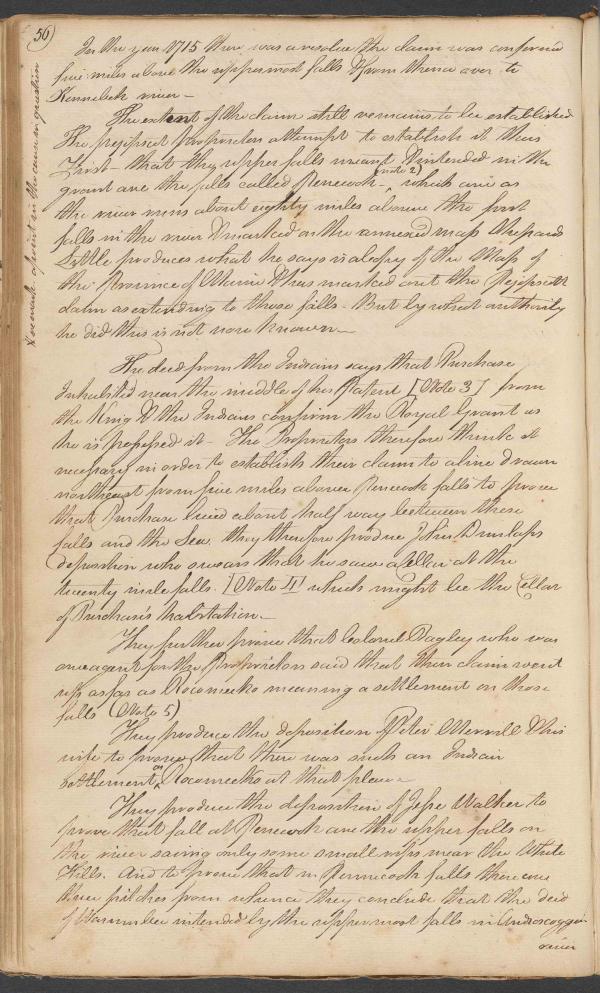 56
In the year 1715 there was a resolve the claim was confirmed
five miles above the uppermost falls & from thence over to
Kennebeck river —
The extent of the claim still remains to be established
The Pejepscot Proprietors attempt to establish it thus
First — that the upper falls meant & intended in the
grant are the falls called Penecook (note 2) which are as
the river runs about eighty miles above the first
falls in the river & marked on the annexed map Shepards
Little produces what he says is a copy of the Map of
the Province of Maine & has marked out the Pejepscott
claim as extending to those falls — But by what authority
he did this is not now known —
The deed from the Indians says that Purchase
Inhabited near the middle of his Patent [Note 3] from
the King & the Indians confirm the Royal Grant as
he is possessed it — The Proprietors therefore think it
necessary in order to establish their claim to a line drawn
northeast from five miles above Penecook falls to prove
that Purchase lived about half way between these
falls and the Sea. they therefore produce John Dunlaps
deposition who swears that he saw a Cellar at the
twenty mile falls. [Note 4] which might be the Cellar
of Purchase's habitation —
They further prove that Colonel Bagley who was
once agent for the Proprietors said that their claim went
up as far as Rocomeeko meaning a settlement on those
falls (Note 5)
They produce the deposition of Peter Merrill & his
wife to prove that there was such an Indian
settlement as Rocomeeko at that place —
They produce the deposition of Jesse Walker to
prove that fall at Penecook are the upper falls on
the river saving only some small rips near the White
Hills. And to prove that in Pennecook falls there are
three pitches from whence they conclude that the deed
of Warumbee intended by the uppermost falls in Androscoggin
river